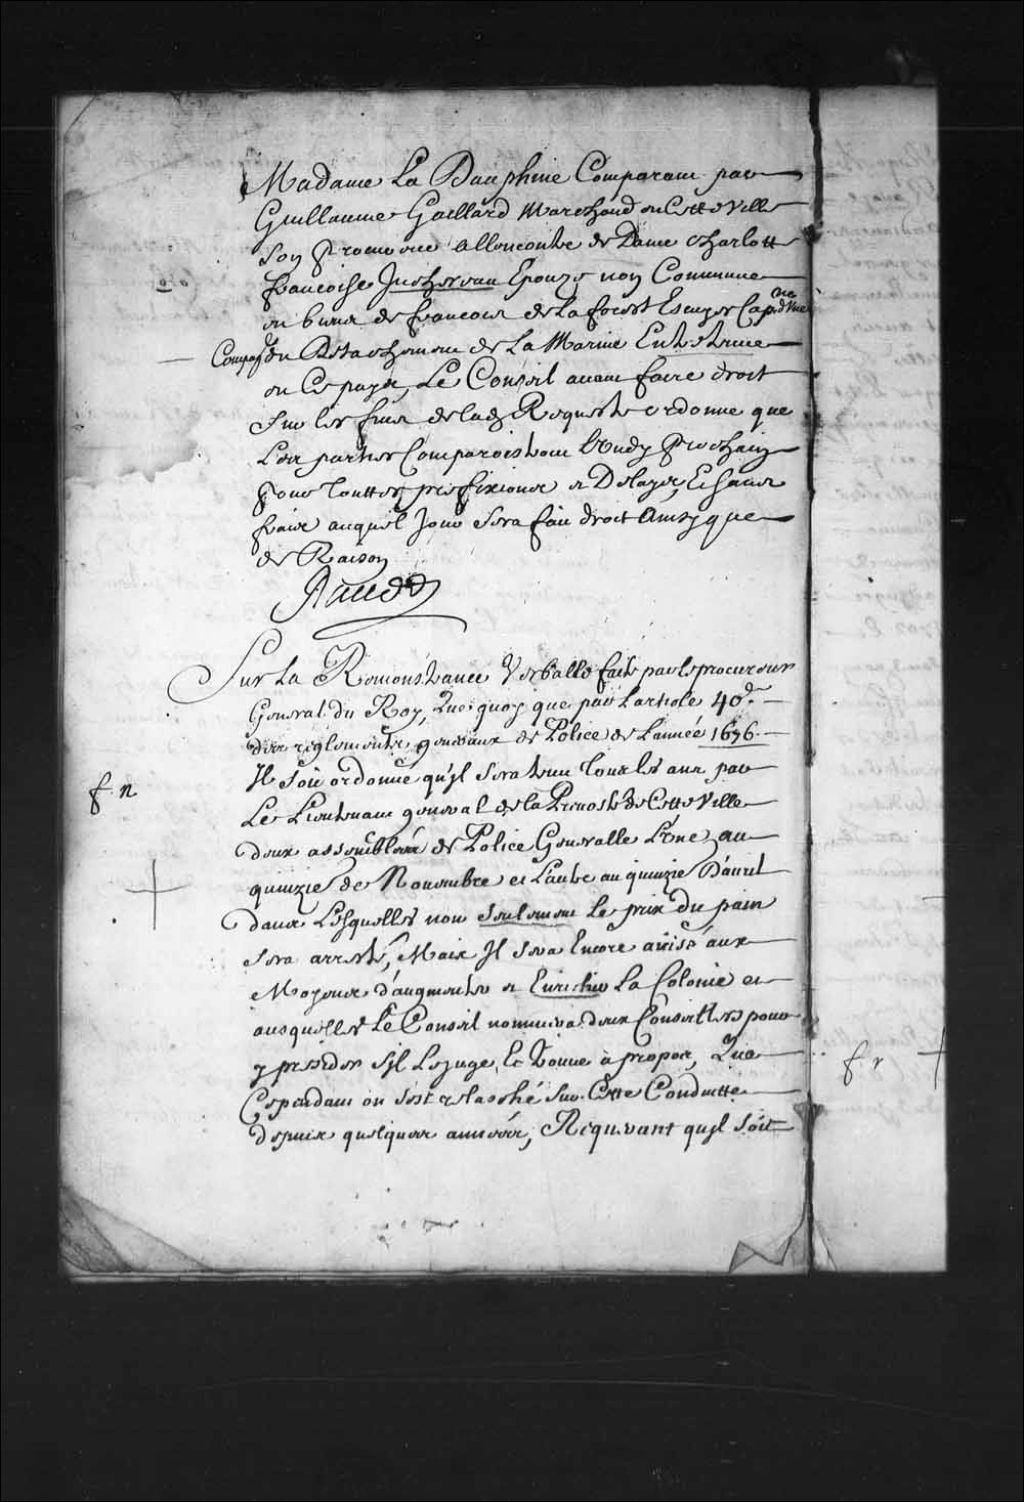 Madame La Dauphine Comparant par
Guillaume Gaillard Marchand en Cette Ville
son procureur allencontre de Dame Charlotte
francoise Juchereau Epouze non Commune
en biens de francois de la forest Escuyer Cap.ne d'Une
Compag.e du Detachement de La Marine Entretenue
en Ce payis, Le Conseil avant faire droit
sur les fins de lad. Requeste ordonne que
Les parties Comparoistront lundy prochain
pour touttes prefixions et Delays, Et sans
frais auquel Jour sera fait droit Ainsy que
de Raison
Raudot
Sur La Remonstrance Verballe faite par le procureur
General du Roy, Que quoy que par Larticle 40.e
des reglements generaux de Police de L'année 1676.
Il soit ordonné qu'jl sera tenu tous les ans par
Le Lieutenant general de la Prevosté de Cette Ville
deux assemblées de Police Generalle L'une au
quinzie de Novembre et L'autre au quinzie D'avril
dans Lesquelles non seulement Le prix du pain
sera arresté, Mais Il sera Encore avisé aux
Moyens d'augmenter et Enrichir La Colonie et
ausquelles Le Conseil nommera deux Conseillers pour
y presider s'jl Le juge Et trouve à propos, Que
Cependant on s'est relasché sur Cette Conduitte
depuis quelques années, Requerant qu'jl soit
f. n
f r